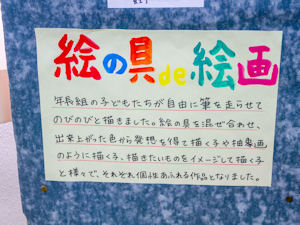 絵の具de絵画
年長組の子どもたちが自由に筆を走らせて
のびのびと描きました。絵の具を混ぜ合わせ、
出来上がった色から発想を得て描く子や抽象画
のように描く子、描きたいものをイメージして描く子
と様々で、それぞれ個性あふれる作品となりました。